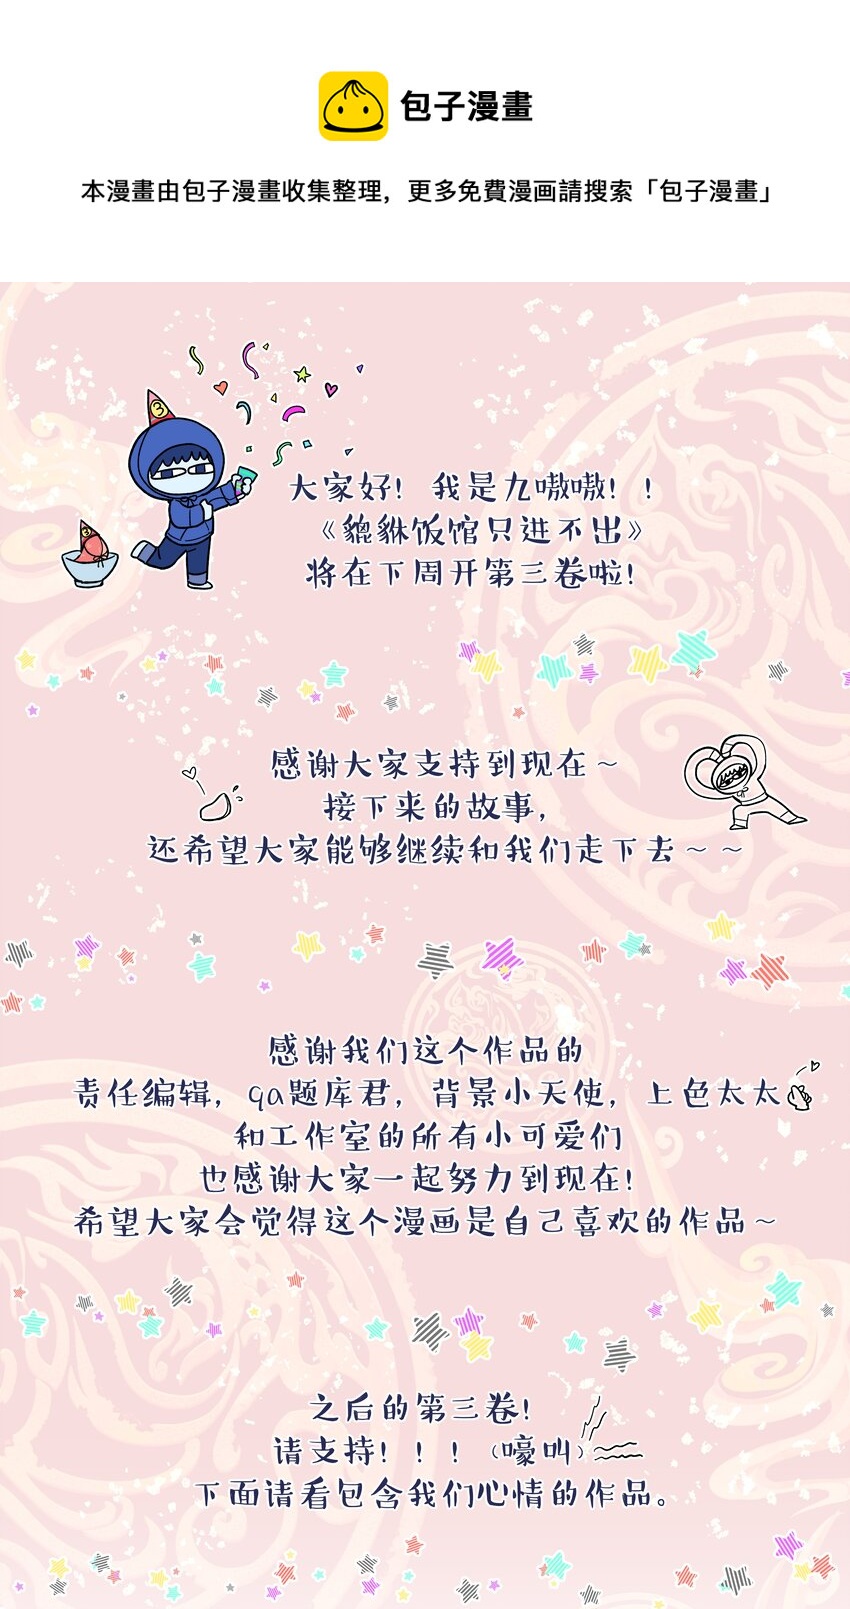 包子漫畫
本漫畫由包子漫畫收集整理，更多免費漫画請搜索「包子漫畫」
3
大家好！我是九嗷嗷！！
《貔貅饭馆只进不出》
将在下周开第三卷啦！
3
感谢大家支持到现在～
接下来的故事，
还希望大家能够继续和我们走下去～～
感谢我们这个作品的
责任编辑，qa题库君，背景小天使，上色太太
和工作室的所有小可爱们
也感谢大家一起努力到现在！
希望大家会觉得这个漫画是自己喜欢的作品～
之后的第三卷！
请支持！！！（嚎叫）
下面请看包含我们心情的作品。